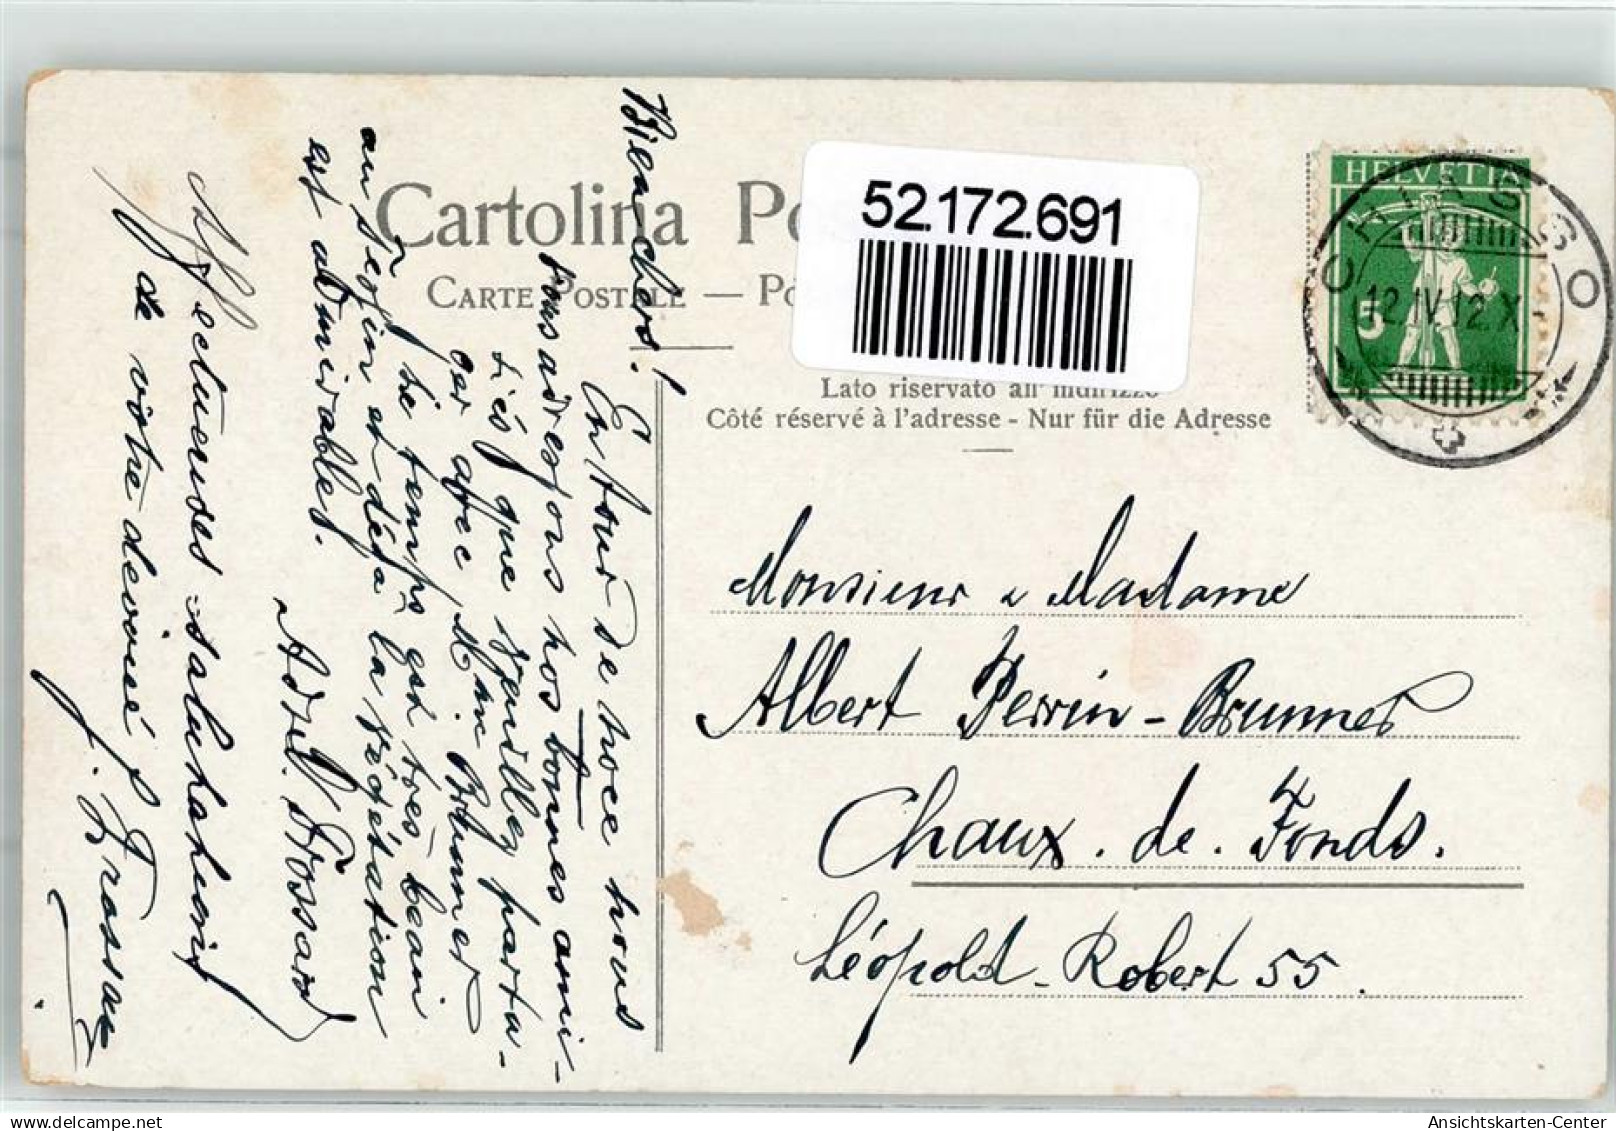 Cartolina Po
CARTE POSTALE — Po
52.172.691
Lato riservato all' indirizzo
Côté réservé à l'adresse - Nur für die Adresse
HELVETIA
5
CHIASSO
12.IV.12.X
Bien chers!
Autour de noce nous
vous adressons nos bonnes ami-
tiés que veuillez parta-
ger avec Mme Brunner
le temps est très beau
au Tessin et déjà la végétation
est admirable.
Adr. Frossard
Affectueuses salutations
de votre dévoué J. Frossard
Monsieur & Madame
Albert Perrin-Brunner
Chaux. de. Fonds.
Léopold-Robert 55.
Ansichtskarten-Center
www.delcampe.net